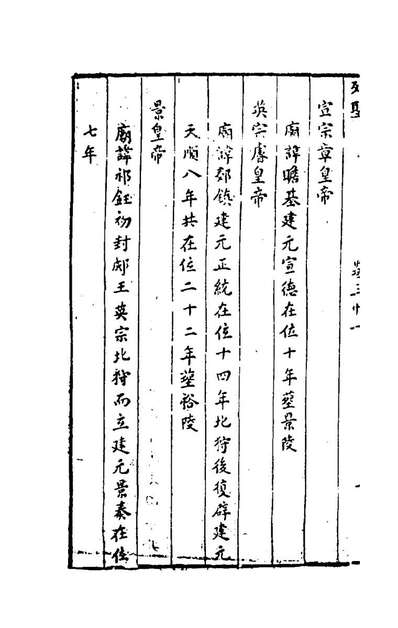 列聖
宣宗章皇帝
廟諱瞻基建元宣德在位十年葬景陵
英宗睿皇帝
廟諱祁鎮建元正統在位十四年北狩後復辟建元
天順八年共在位二十二年葬裕陵
景皇帝
廟諱祁鈺初封郕王英宗北狩而立建元景泰在位
七年